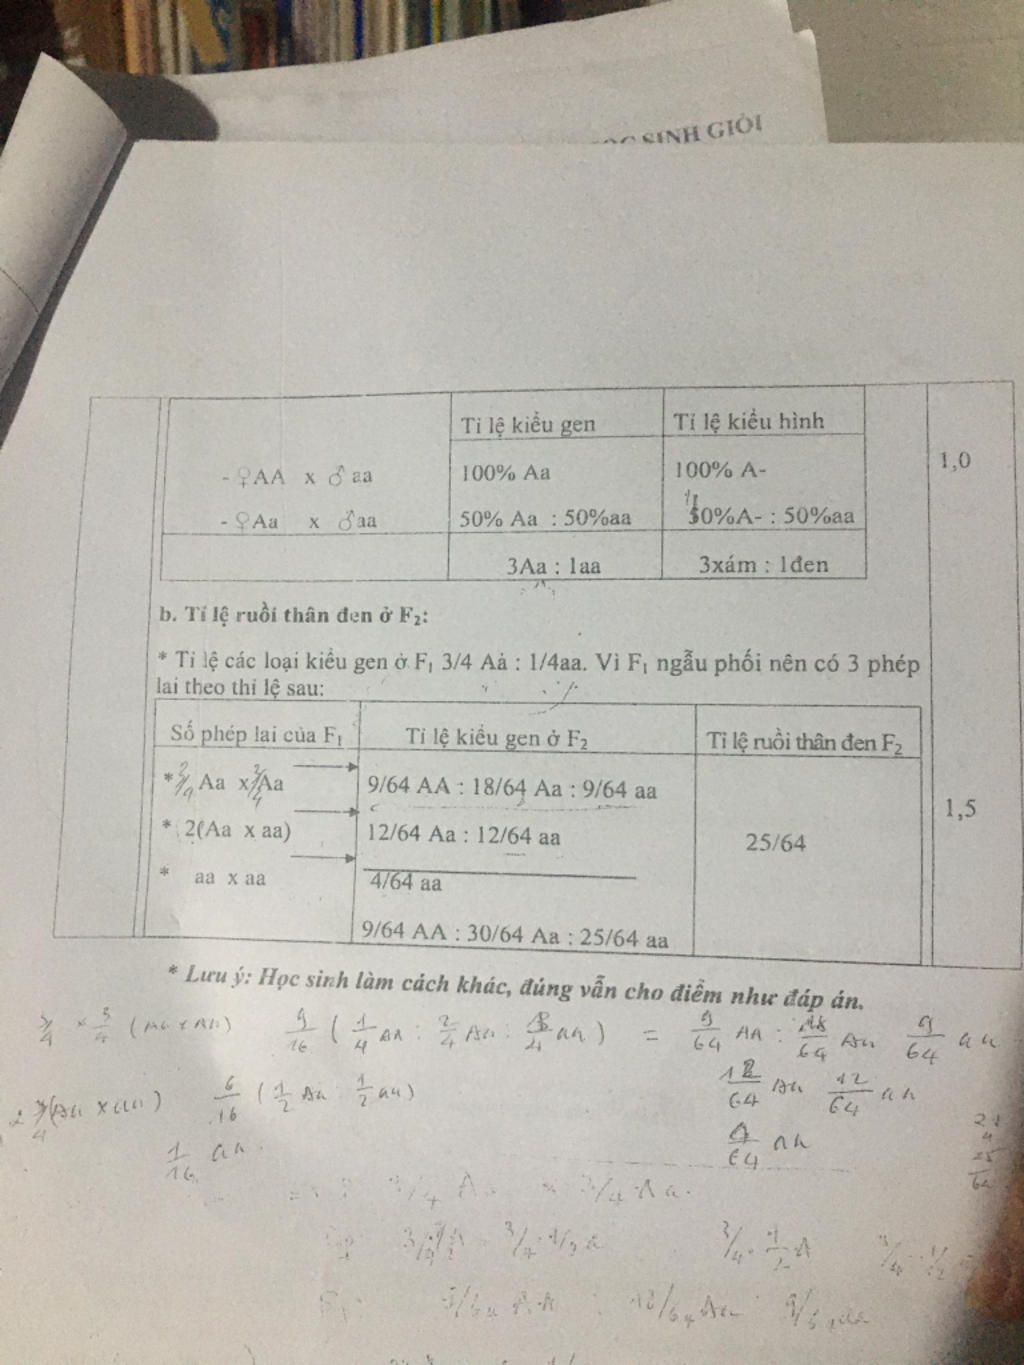 SINH GIỎI
Tỉ lệ kiểu gen Tỉ lệ kiểu hình
- ♀AA x ♂aa 100% Aa 100% A- 1,0
- ♀Aa x ♂aa 50% Aa : 50%aa 50%A- : 50%aa
3Aa : 1aa 3xám : 1đen
b. Tỉ lệ ruồi thân đen ở F₂:
* Tỉ lệ các loại kiểu gen ở F₁ 3/4 Aa : 1/4aa. Vì F₁ ngẫu phối nên có 3 phép
lai theo thỉ lệ sau:
Số phép lai của F₁ Tỉ lệ kiểu gen ở F₂ Tỉ lệ ruồi thân đen F₂
* Aa x Aa 9/64 AA : 18/64 Aa : 9/64 aa
* 2(Aa x aa) 12/64 Aa : 12/64 aa 25/64 1,5
* aa x aa 4/64 aa
9/64 AA : 30/64 Aa : 25/64 aa
* Lưu ý: Học sinh làm cách khác, đúng vẫn cho điểm như đáp án.
3/4 x 3/4 (Aa x Aa) 9/16 ( 1/4 AA : 2/4 Aa : 1/4 aa ) = 9/64 AA : 18/64 Aa 9/64 aa
(Aa x aa) 6/16 ( 1/2 Aa 1/2 aa) 12/64 Aa 12/64 aa
1/16 aa 4/64 aa
3/4 Aa x 3/4 Aa.
3/4 . 1/2 A